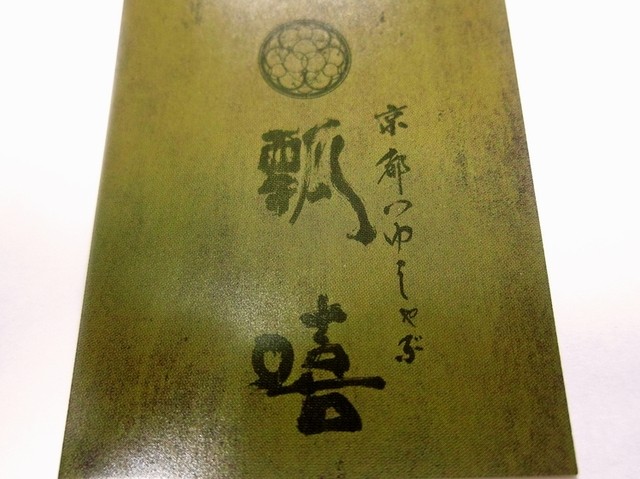 京都つゆしゃぶ
瓢嘻